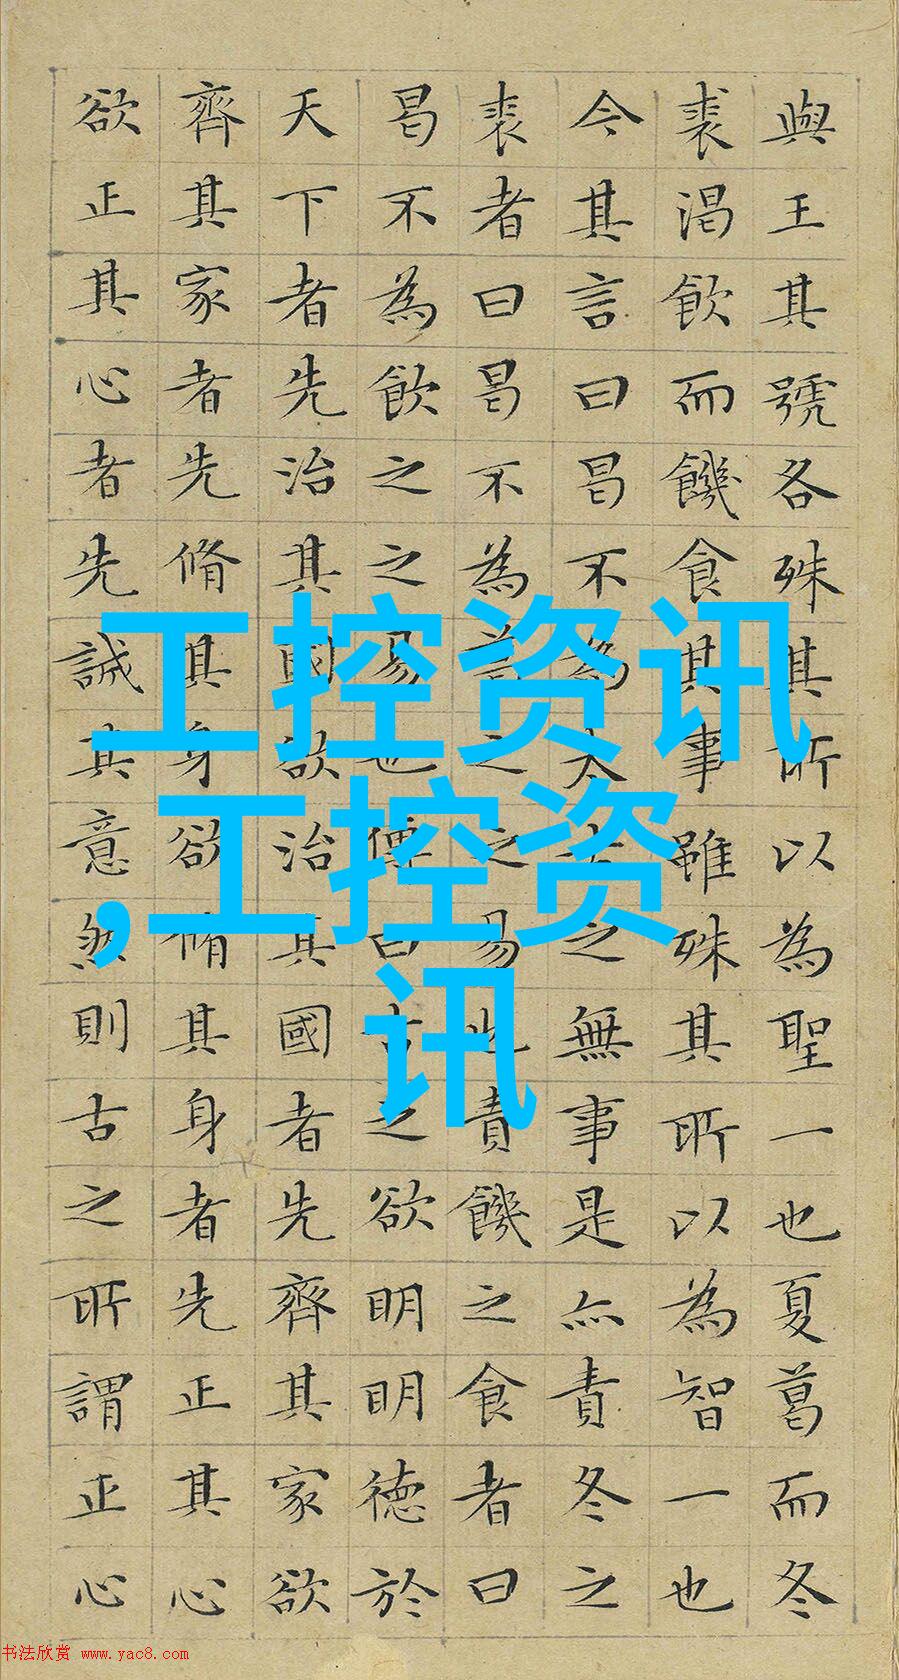 與王其號各殊其所以為聖一也夏葛而冬
裘渴飲而饑食其事雖殊其所以為智一也
今其言曰曷不為太古之無事是亦責冬之
裘者曰曷不為葛之之易也責饑之食者曰
曷不為飲之之易也傳曰古之欲明明德於
天下者先治其國欲治其國者先齊其家欲
齊其家者先脩其身欲脩其身者先正其心
欲正其心者先誠其意然則古之所謂正心
工控资讯
,工控资
讯
书法欣赏 www.yac8.com